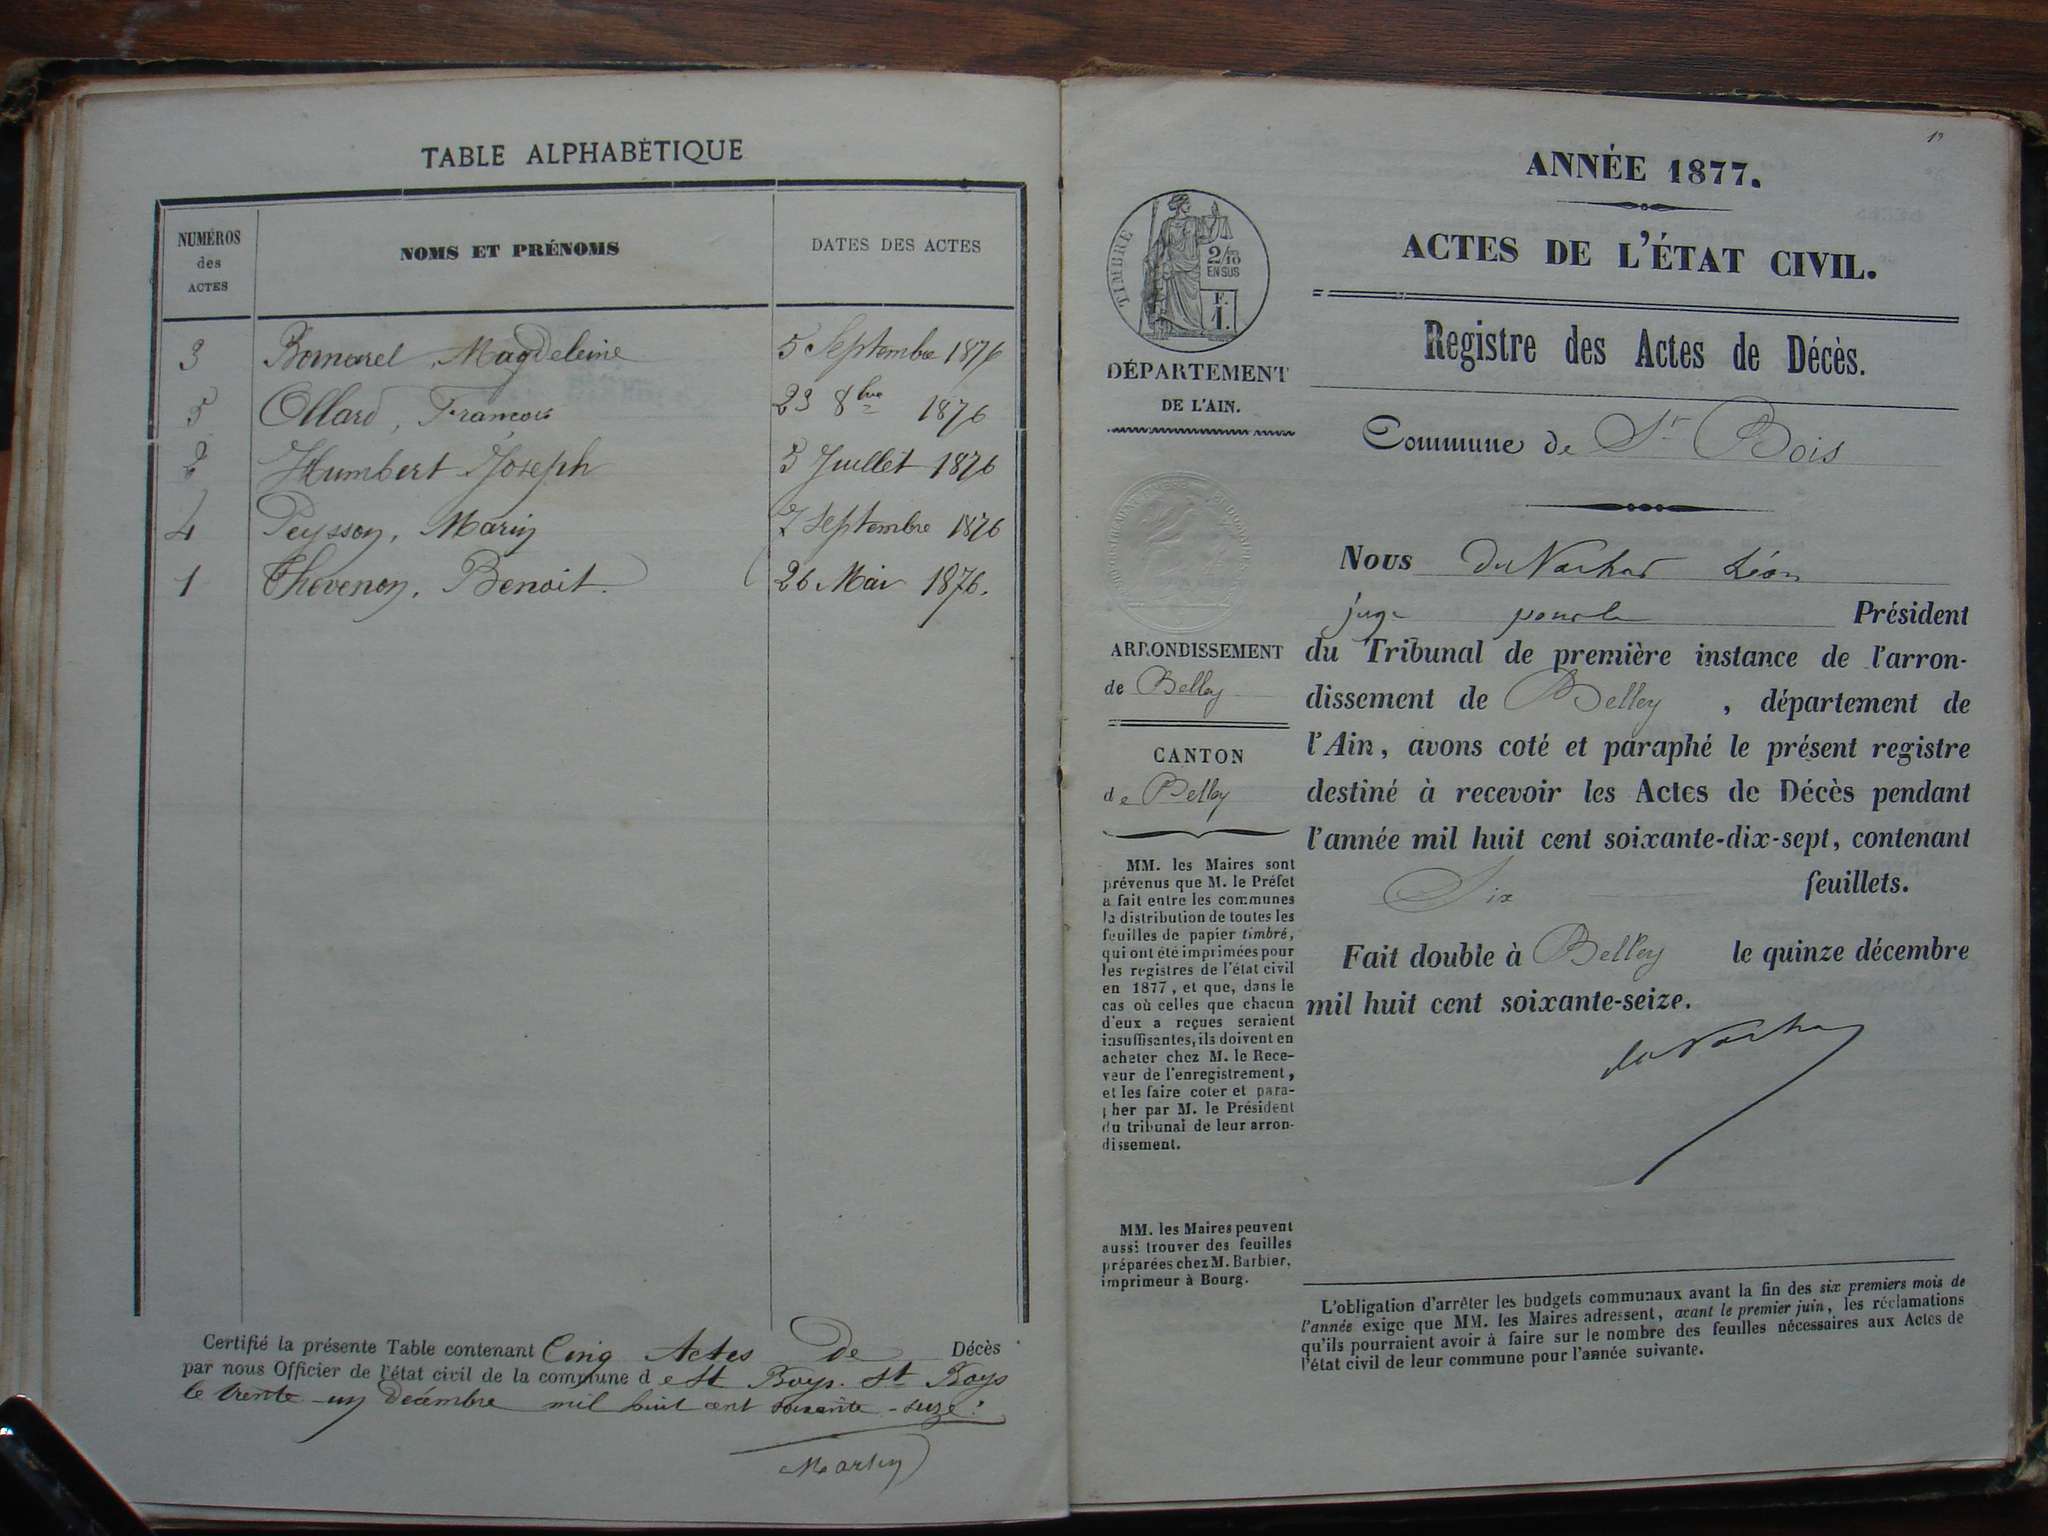 TABLE ALPHABÉTIQUE
NUMÉROS des ACTES NOMS ET PRÉNOMS DATES DES ACTES
3 Bornarel, Magdeleine 5 Septembre 1876
5 Ollard, Francois 23 8bre 1876
2 Humbert Joseph 5 Juillet 1876
4 Peysson, Marin 7 Septembre 1876
1 Thevenon, Benoit 26 Mai 1876.
Certifié la présente Table contenant Cinq Actes De Décès
par nous Officier de l'état civil de la commune de St Boys. St Boys
le trente-un Décembre mil huit cent soixante-seize.
Martin
ANNÉE 1877.
ACTES DE L'ÉTAT CIVIL.
Registre des Actes de Décès.
Commune de St Bois
TIMBRE
2/10
EN SUS
F.
1.
DÉPARTEMENT
DE L'AIN.
ARRONDISSEMENT
de Belley
CANTON
de Belley
MM. les Maires sont
prévenus que M. le Préfet
a fait entre les communes
la distribution de toutes les
feuilles de papier timbré,
qui ont été imprimées pour
les registres de l'état civil
en 1877, et que, dans le
cas où celles que chacun
d'eux a reçues seraient
insuffisantes, ils doivent en
acheter chez M. le Rece-
veur de l'enregistrement,
et les faire coter et para-
pher par M. le Président
du tribunal de leur arron-
dissement.
MM. les Maires peuvent
aussi trouver des feuilles
préparées chez M. Barbier,
imprimeur à Bourg.
Nous Léon
juge pour le Président
du Tribunal de première instance de l'arron-
dissement de Belley, département de
l'Ain, avons coté et paraphé le présent registre
destiné à recevoir les Actes de Décès pendant
l'année mil huit cent soixante-dix-sept, contenant
Six feuillets.
Fait double à Belley le quinze décembre
mil huit cent soixante-seize.
L'obligation d'arrêter les budgets communaux avant la fin des six premiers mois de
l'année exige que MM. les Maires adressent, avant le premier juin, les réclamations
qu'ils pourraient avoir à faire sur le nombre des feuilles nécessaires aux Actes de
l'état civil de leur commune pour l'année suivante.